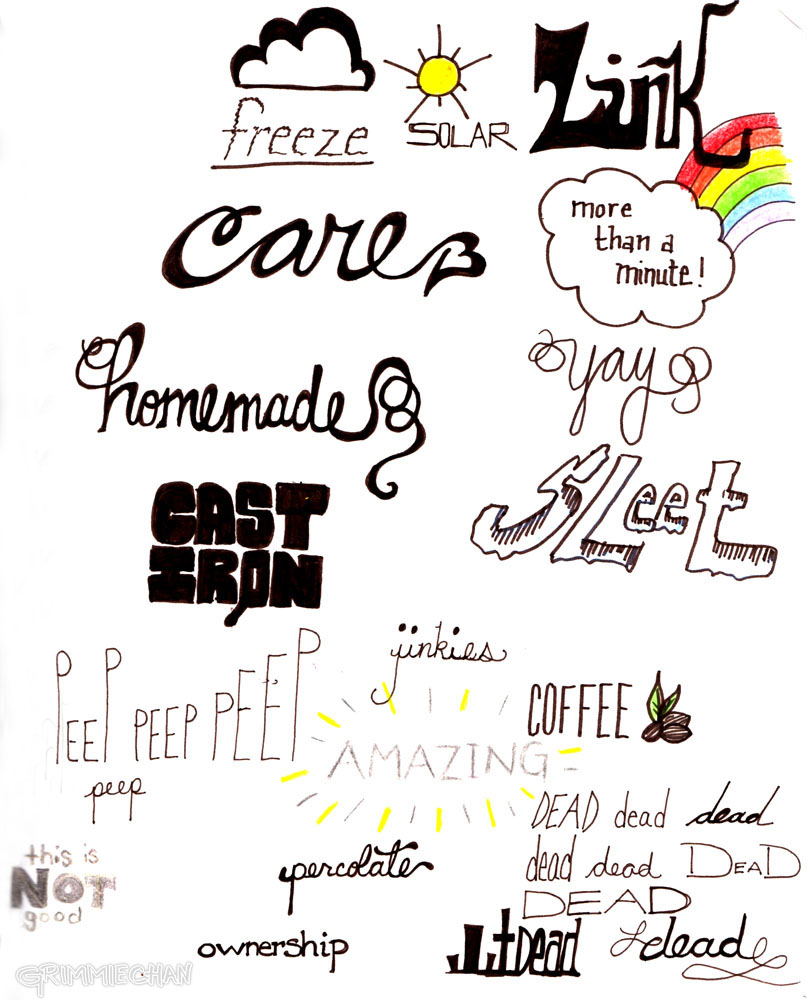 freeze
SOLAR
Zink
care
more
than a
minute!
homemade
yay
CAST
IRON
SLeet
jinkies
PEEP PEEP PEEP
peep
COFFEE
AMAZING
DEAD dead dead
dead dead DEAD
DEAD
Dead dead
percolate
this is
NOT
good
ownership
GRIMMIECHAN